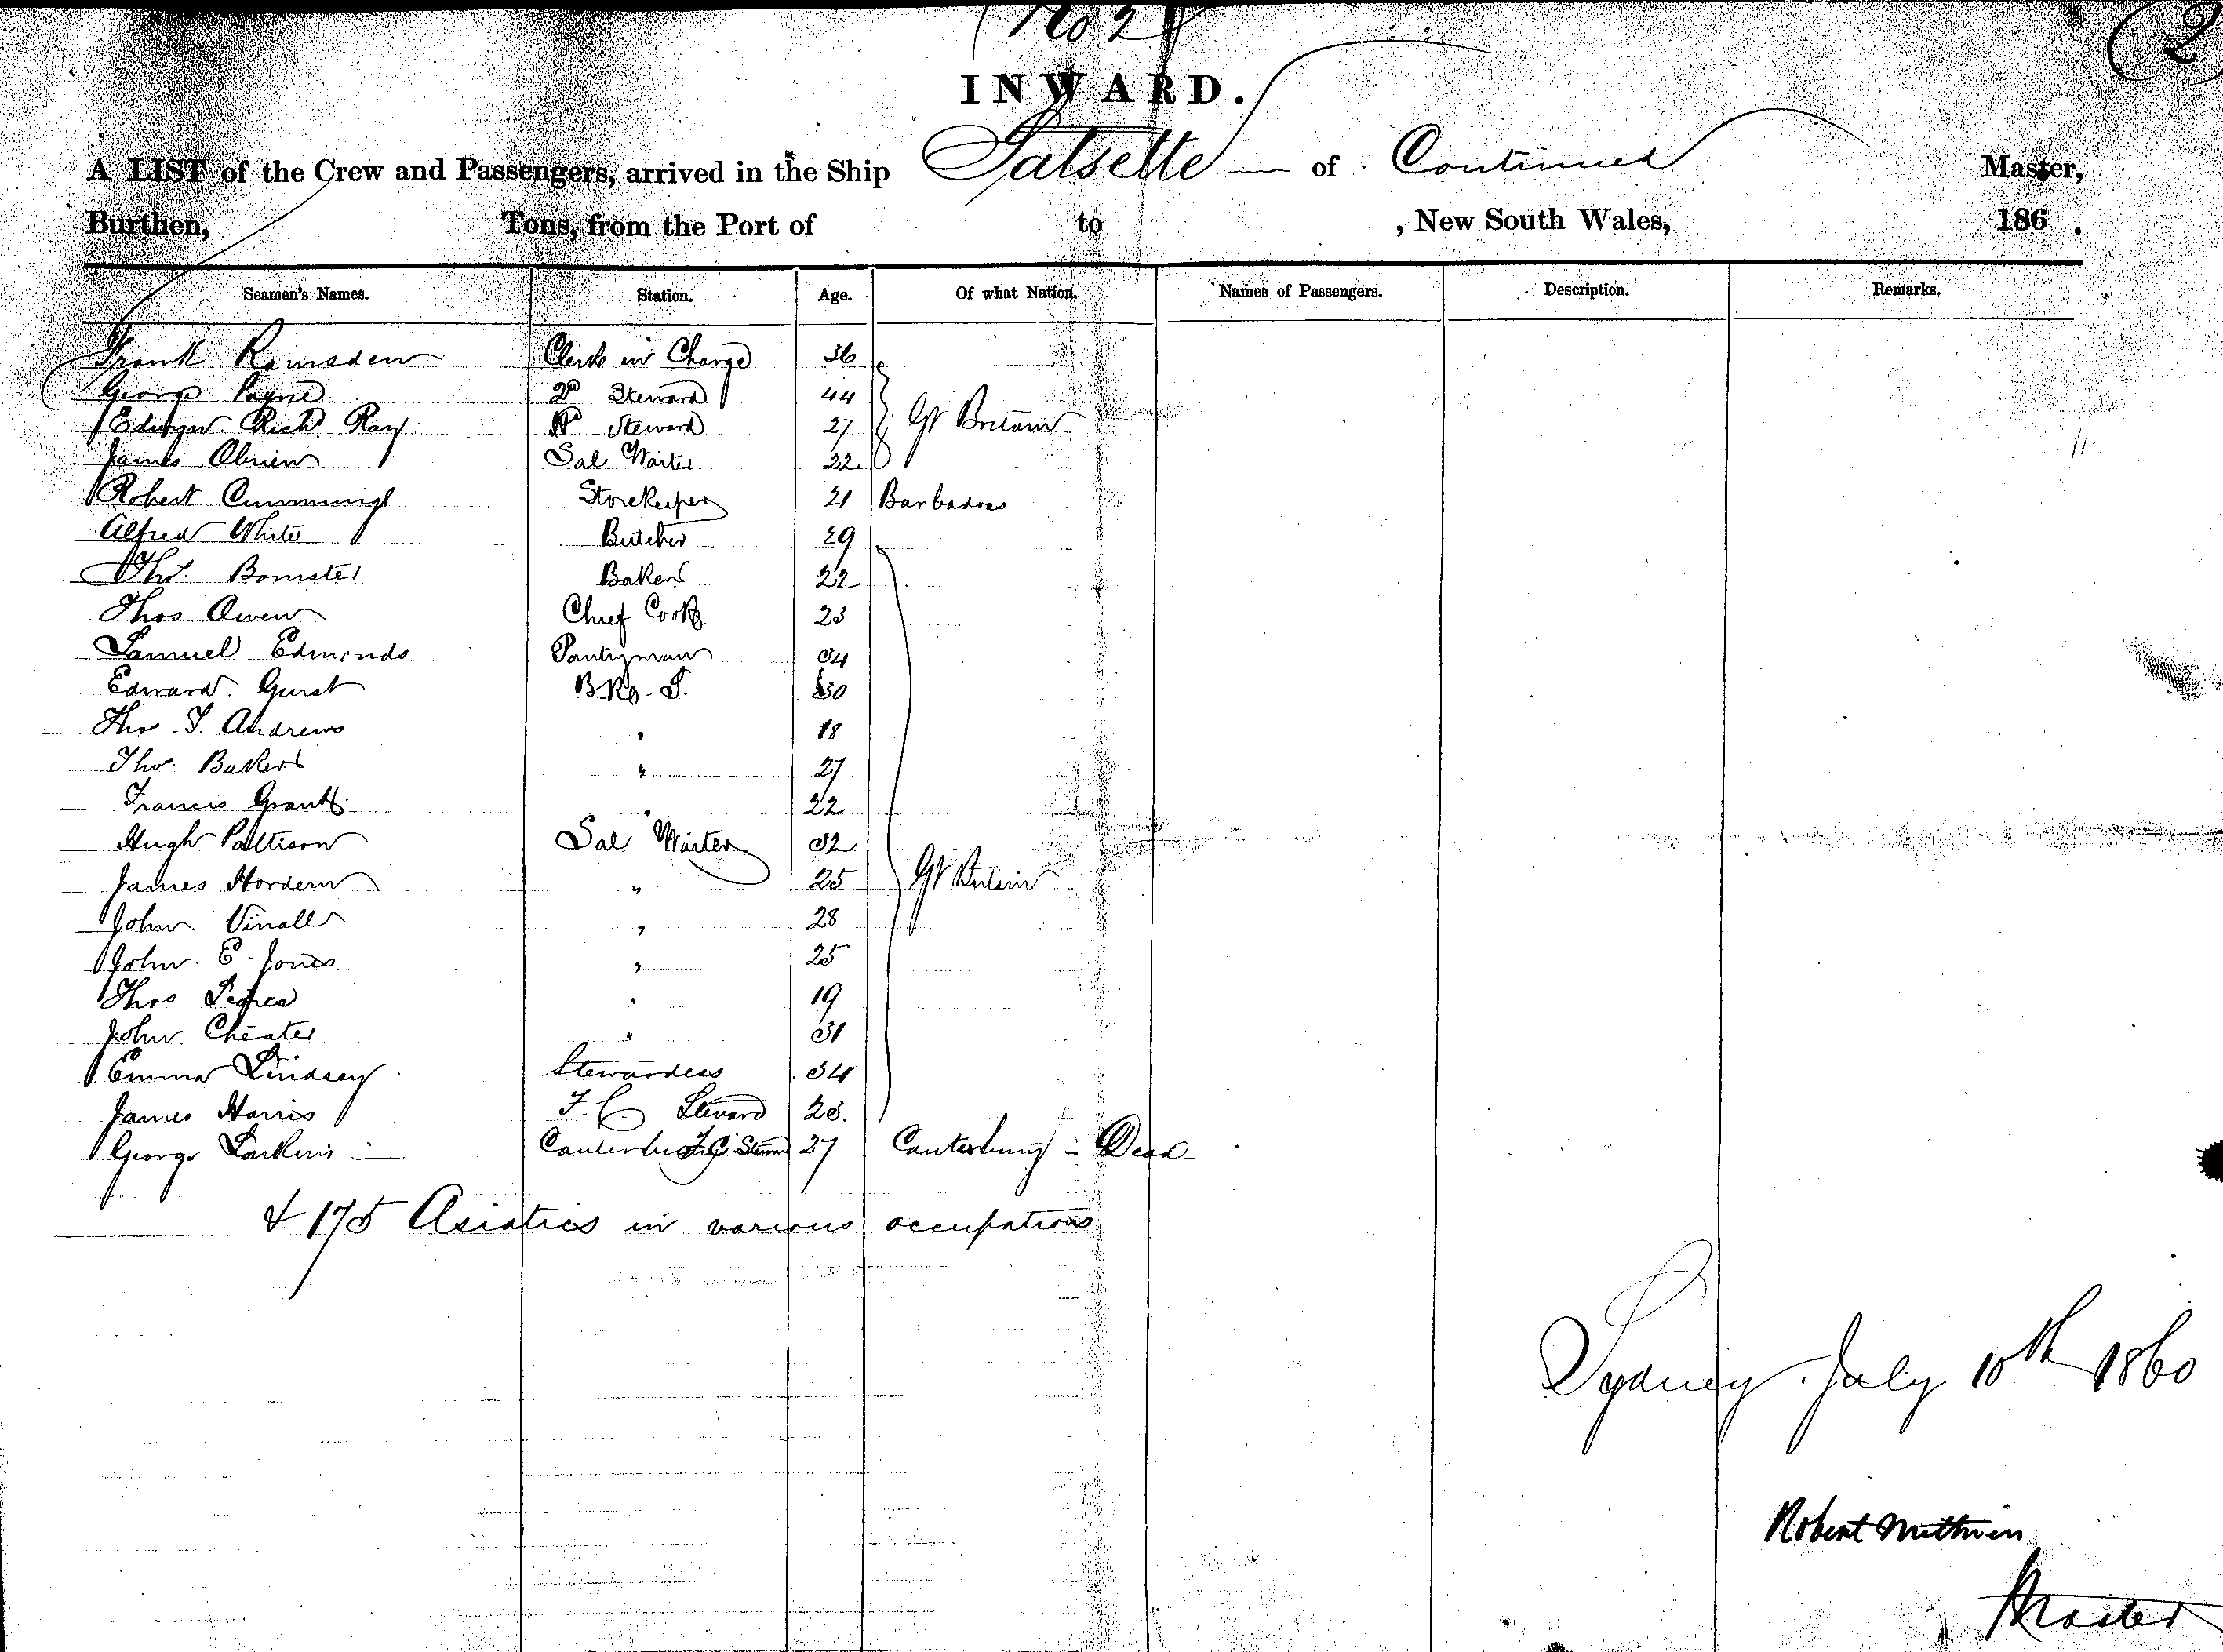 (No 2)
2
INWARD.
A LIST of the Crew and Passengers, arrived in the Ship Salsette of Continued Master,
Burthen, Tons, from the Port of to , New South Wales, 186 .
Seamen's Names. Station. Age. Of what Nation. Names of Passengers. Description. Remarks.
Frank Ramsden Clerk in Charge 36
George Payne 2nd Steward 44
Edwyn Richd Ray Steward 27 Gt Britain
James Obrien Sal Waiter 22
Robert Cummings Storekeeper 21 Barbadoes
Alfred White Butcher 29
Thos. Bomster Baker 22
Thos Owen Chief Cook 23
Samuel Edmonds Pantryman 34
Edward Gurst 30
Thos S. Andrews " 18
Thos. Baker " 27
Francis Grant " 22
Hugh Pattison Sal Waiter 32
James Hordern " 25 Gt Britain
John Vinall " 28
John E Jones " 25
Thos " 19
John Cheater " 31
Emma Lindsey Stewardess 34
James Harris F. C. Steward 23.
George Larkins Canterbury F.C. Steward 27 Canterbury - Dead
& 175 Asiatics in various occupations
Sydney July 10th 1860
Robert Methven
Master